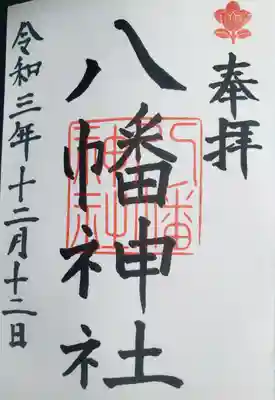 奉拝
八幡神社
八幡
神社
令和三年十二月十二日